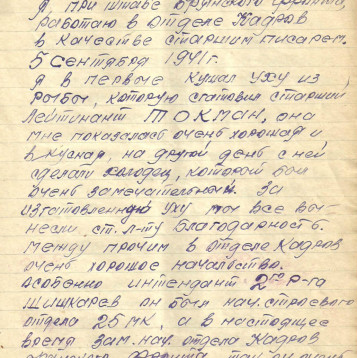 я, при штабе Брянского фронта,
работаю в отделе кадров
в качестве старшим писарем.
5 сентября 1941г.
я в первые кушал уху из
рыбы, которую сготовил старший
лейтинант ТОКМАН, она
мне показалась очень хорошая и
вкусная, на другой день с ней
сделали холодец, которой был
очень замечательный. За
изготовленную уху мы все вы-
несли, ст. л-ту благодарность.
Между прочим в отделе кадров
очень хорошое начальство.
Особенно интендант 2го р-га
Шишкарев он был нач. строевого
отдела 25 МК, а в настоящее
время зам. нач. отдела кадров
фронта